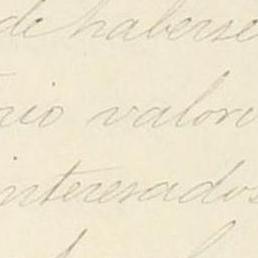 de haberse
rio valori
interesados